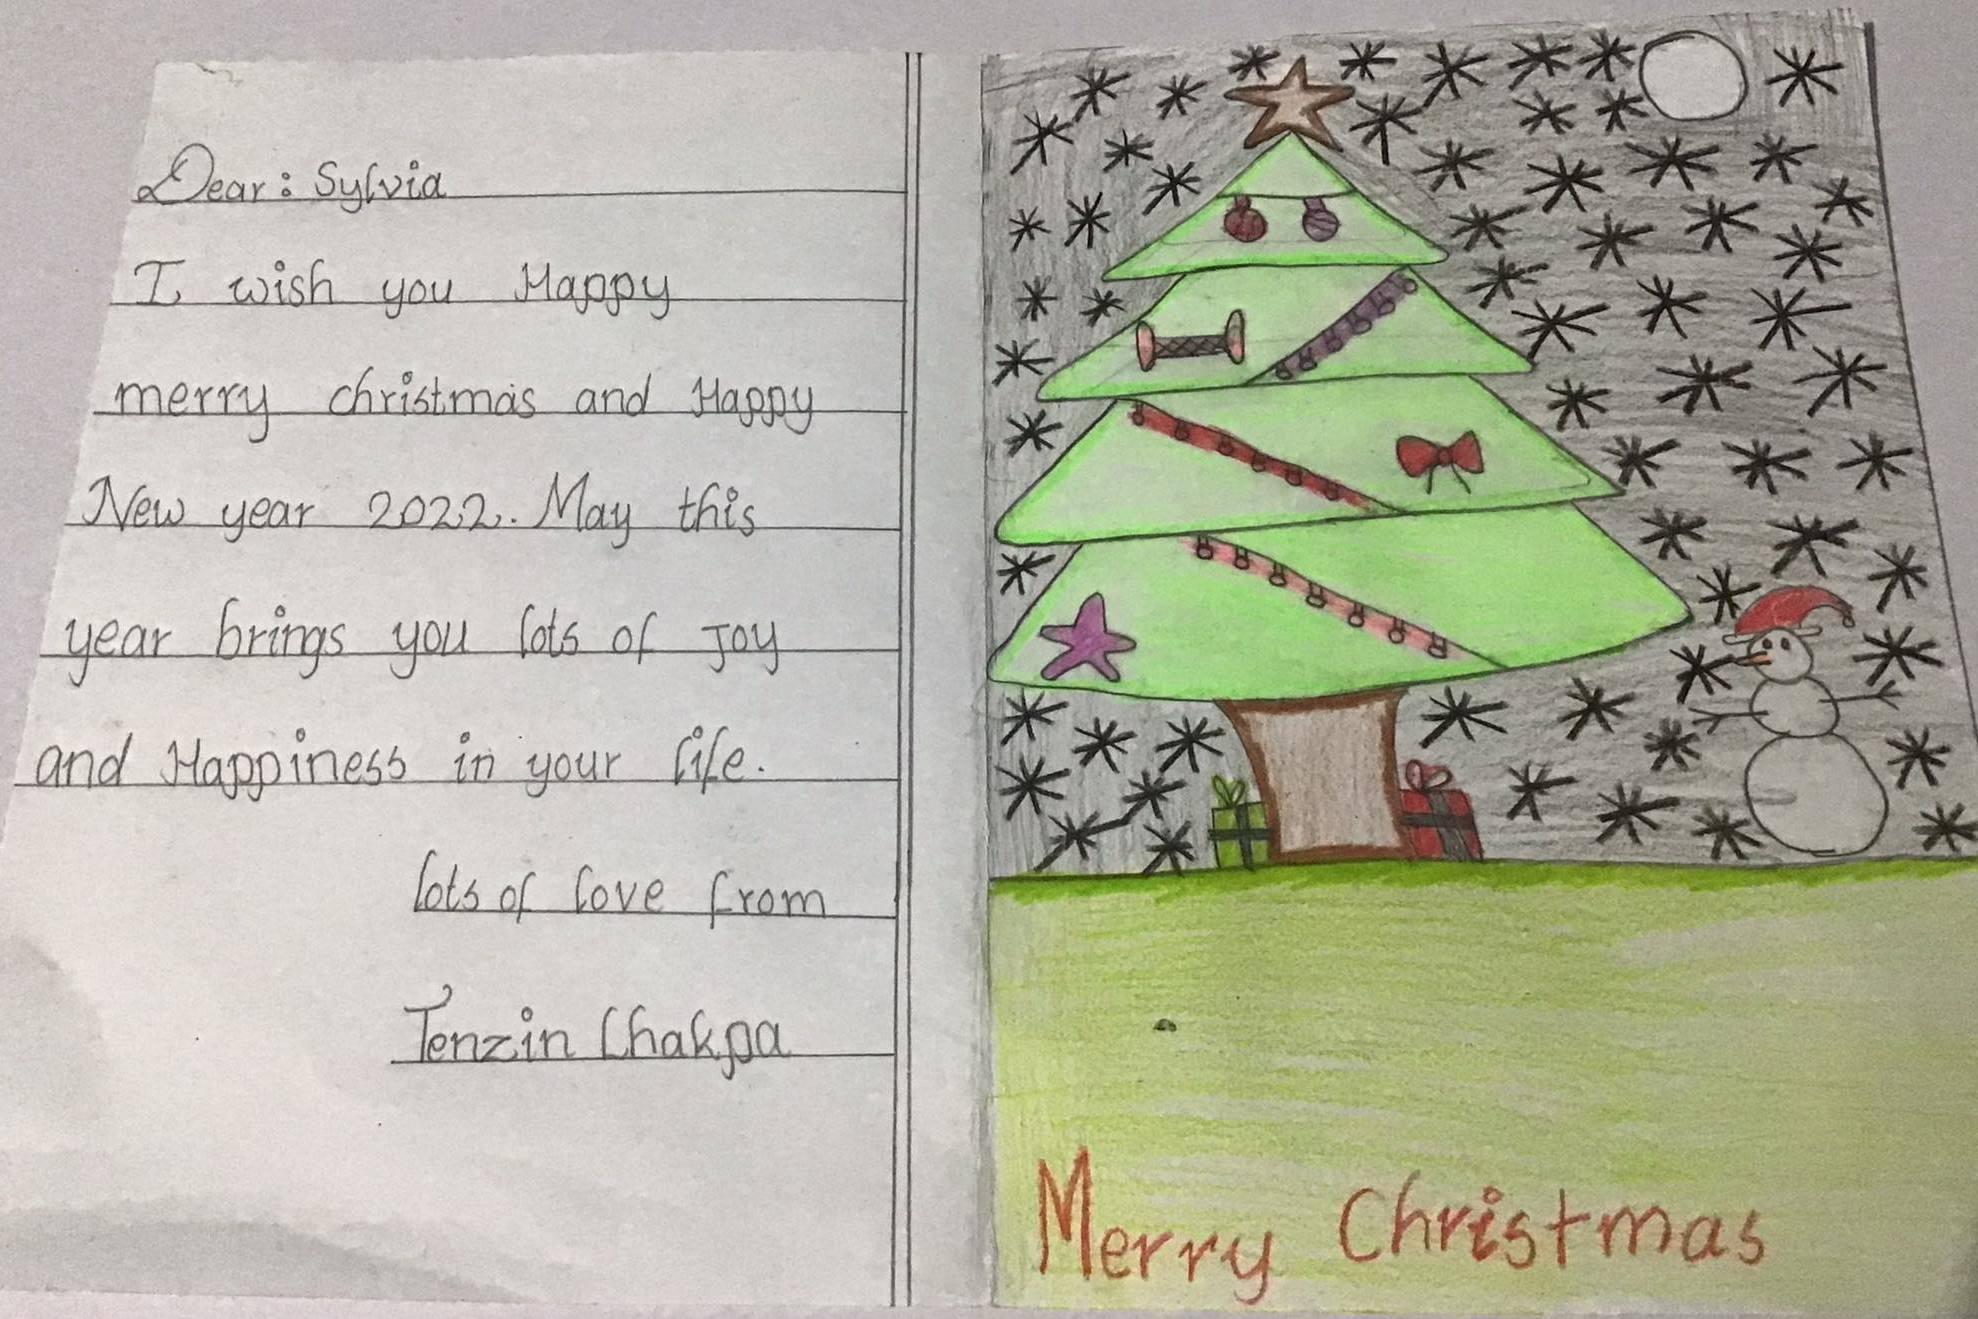 Dear: Sylvia
I wish you Happy
merry christmas and Happy
New year 2022. May this
year brings you lots of Joy
and Happiness in your life.
lots of love from
Tenzin Lhakpa
Merry Christmas